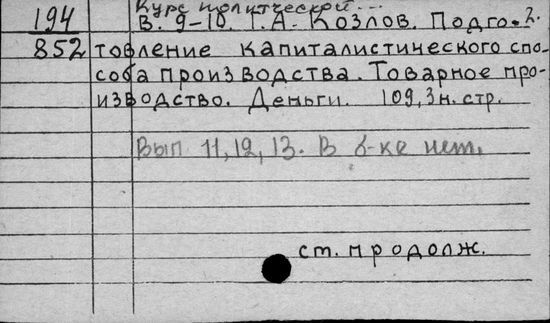 Курс политической... 2.
194 В. 9-10. Г.А. Козлов. Подго-
852 товление капиталистического спо-
соба производства. Товарное про-
изводство. Деньги. 109, 3н. стр.
Вып. 11, 12, 13. В б-ке нет.
ст. продолж.